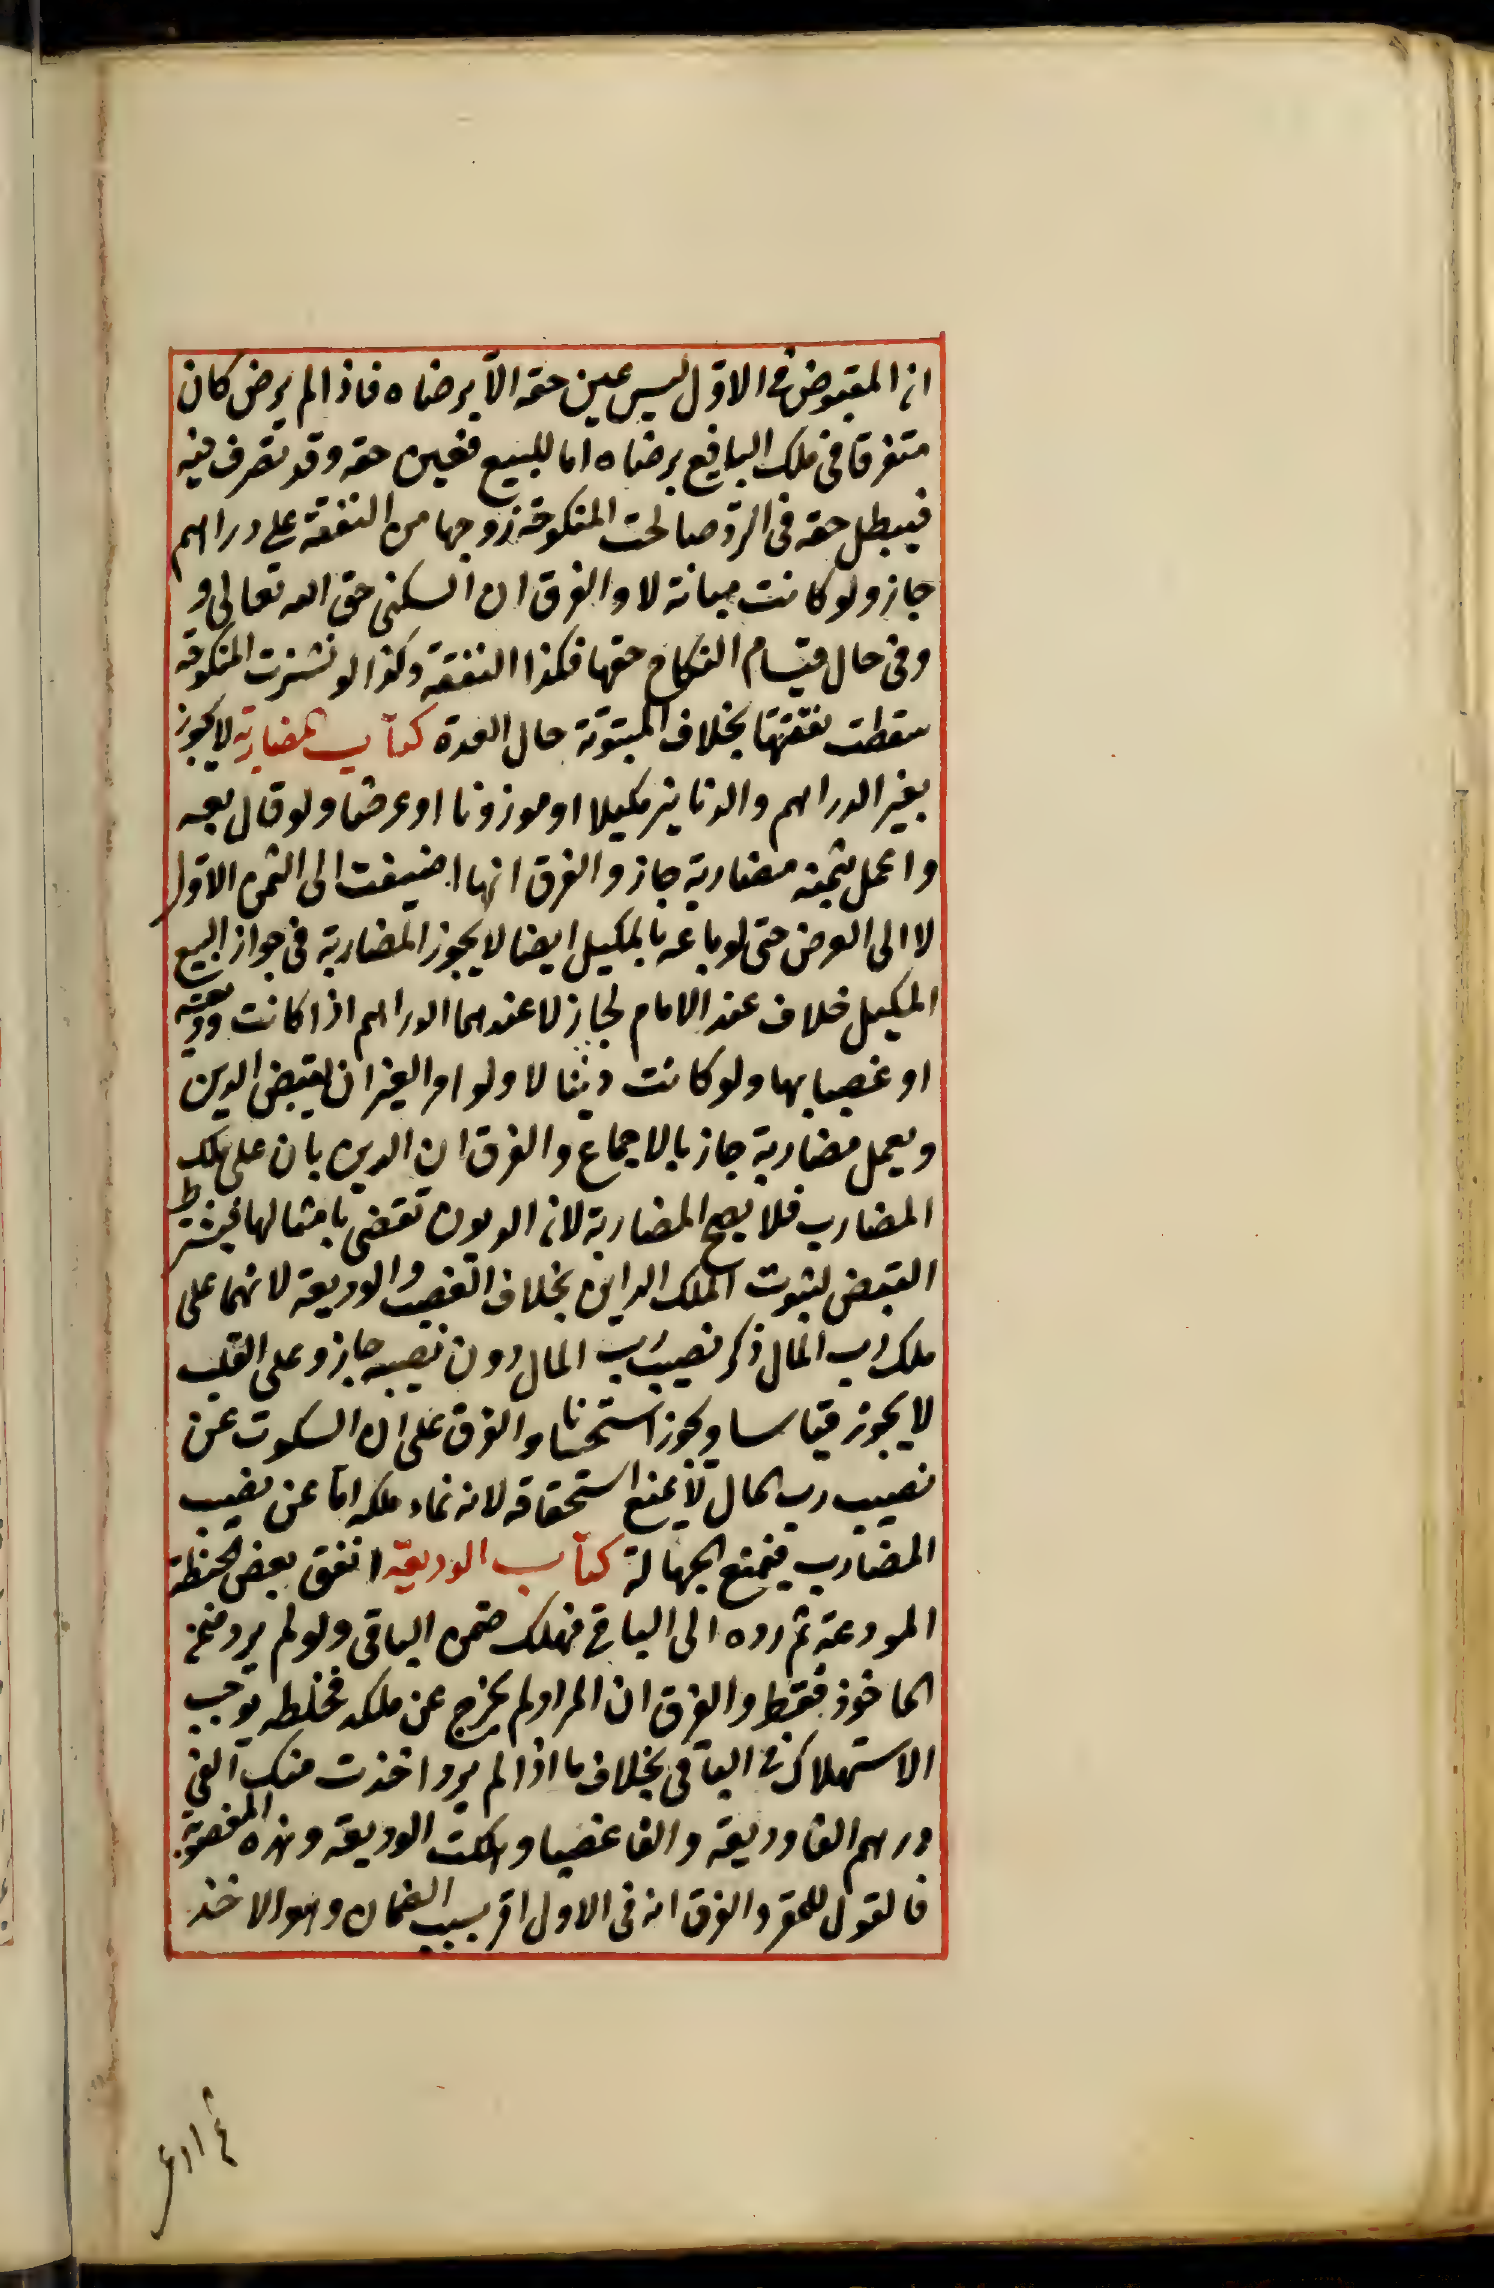 ان المقبوض فى الاوّل ليس عين حقه الّا برضاه فاذا لم يرض كان
متفرقا فى ملك البايع برضاه اما للبيع فعين حقه وقد تصرف فيه
فيبطل حقه فى الردّ صالحت المنكوحة زوجها من النفقة على دراهم
جاز ولو كانت مبانة لا والفرق ان السكنى حق الله تعالى و
وفى حال قيام النكاح حقها فكذا النفقة وكذا لو نشزت المنكوحة
سقطت نفقتها بخلاف المبتوتة حال العدة كتاب المضاربة لا يجوز
بغير الدراهم والدنانير مكيلا او موزونا او عرضا ولو قال بعه
واعمل بثمنه مضاربة جاز والفرق انها اضيفت الى الثمن الاوّل
لا الى العرض حتى لو باعه بالمكيل ايضا لا يجوز المضاربة فى جواز البيع
المكيل خلاف عند الامام لجاز لا عندهما الدراهم اذا كانت وديعة
او غصبا بها ولو كانت دينا لا ولو امر الغير ان يقبض الدين
ويعمل مضاربة جاز بالاجماع والفرق ان الدين بان على ملك
المضارب فلا يصح المضاربة لان الديون تقضى بامثالها فيشترط
القبض لثبوت الملك الداين بخلاف الغصب والوديعة لانهما على
ملك رب المال ذكر نصيب رب المال دون نصيبه جاز وعلى القلب
لا يجوز قياسا ويجوز استحسانا والفرق على ان السكوت عن
نصيب رب المال لا يمنع استحقاقه لانه نماء ملكه امّا عن نصيب
المضارب فيمنع الجهالة كتاب الوديعة انفق بعض الحنطة
المودعة ثم رده الى الباقى فهلك ضمن الباقى ولو لم يرد ضمن
الماخوذ فقط والفرق ان المراد لم يخرج عن ملكه فخلطه يوجب
الاستهلاك فى الباقى بخلاف ما اذا لم يرد اخذت منك الفى
درهم الفا وديعة والفا غصبا وهلكت الوديعة وهذه المغصوبة
فالقول للمقر والفرق انه فى الاول اقر بسبب الضمان وهو الاخذ